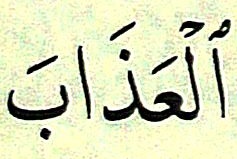 ٱلۡعَذَابَ